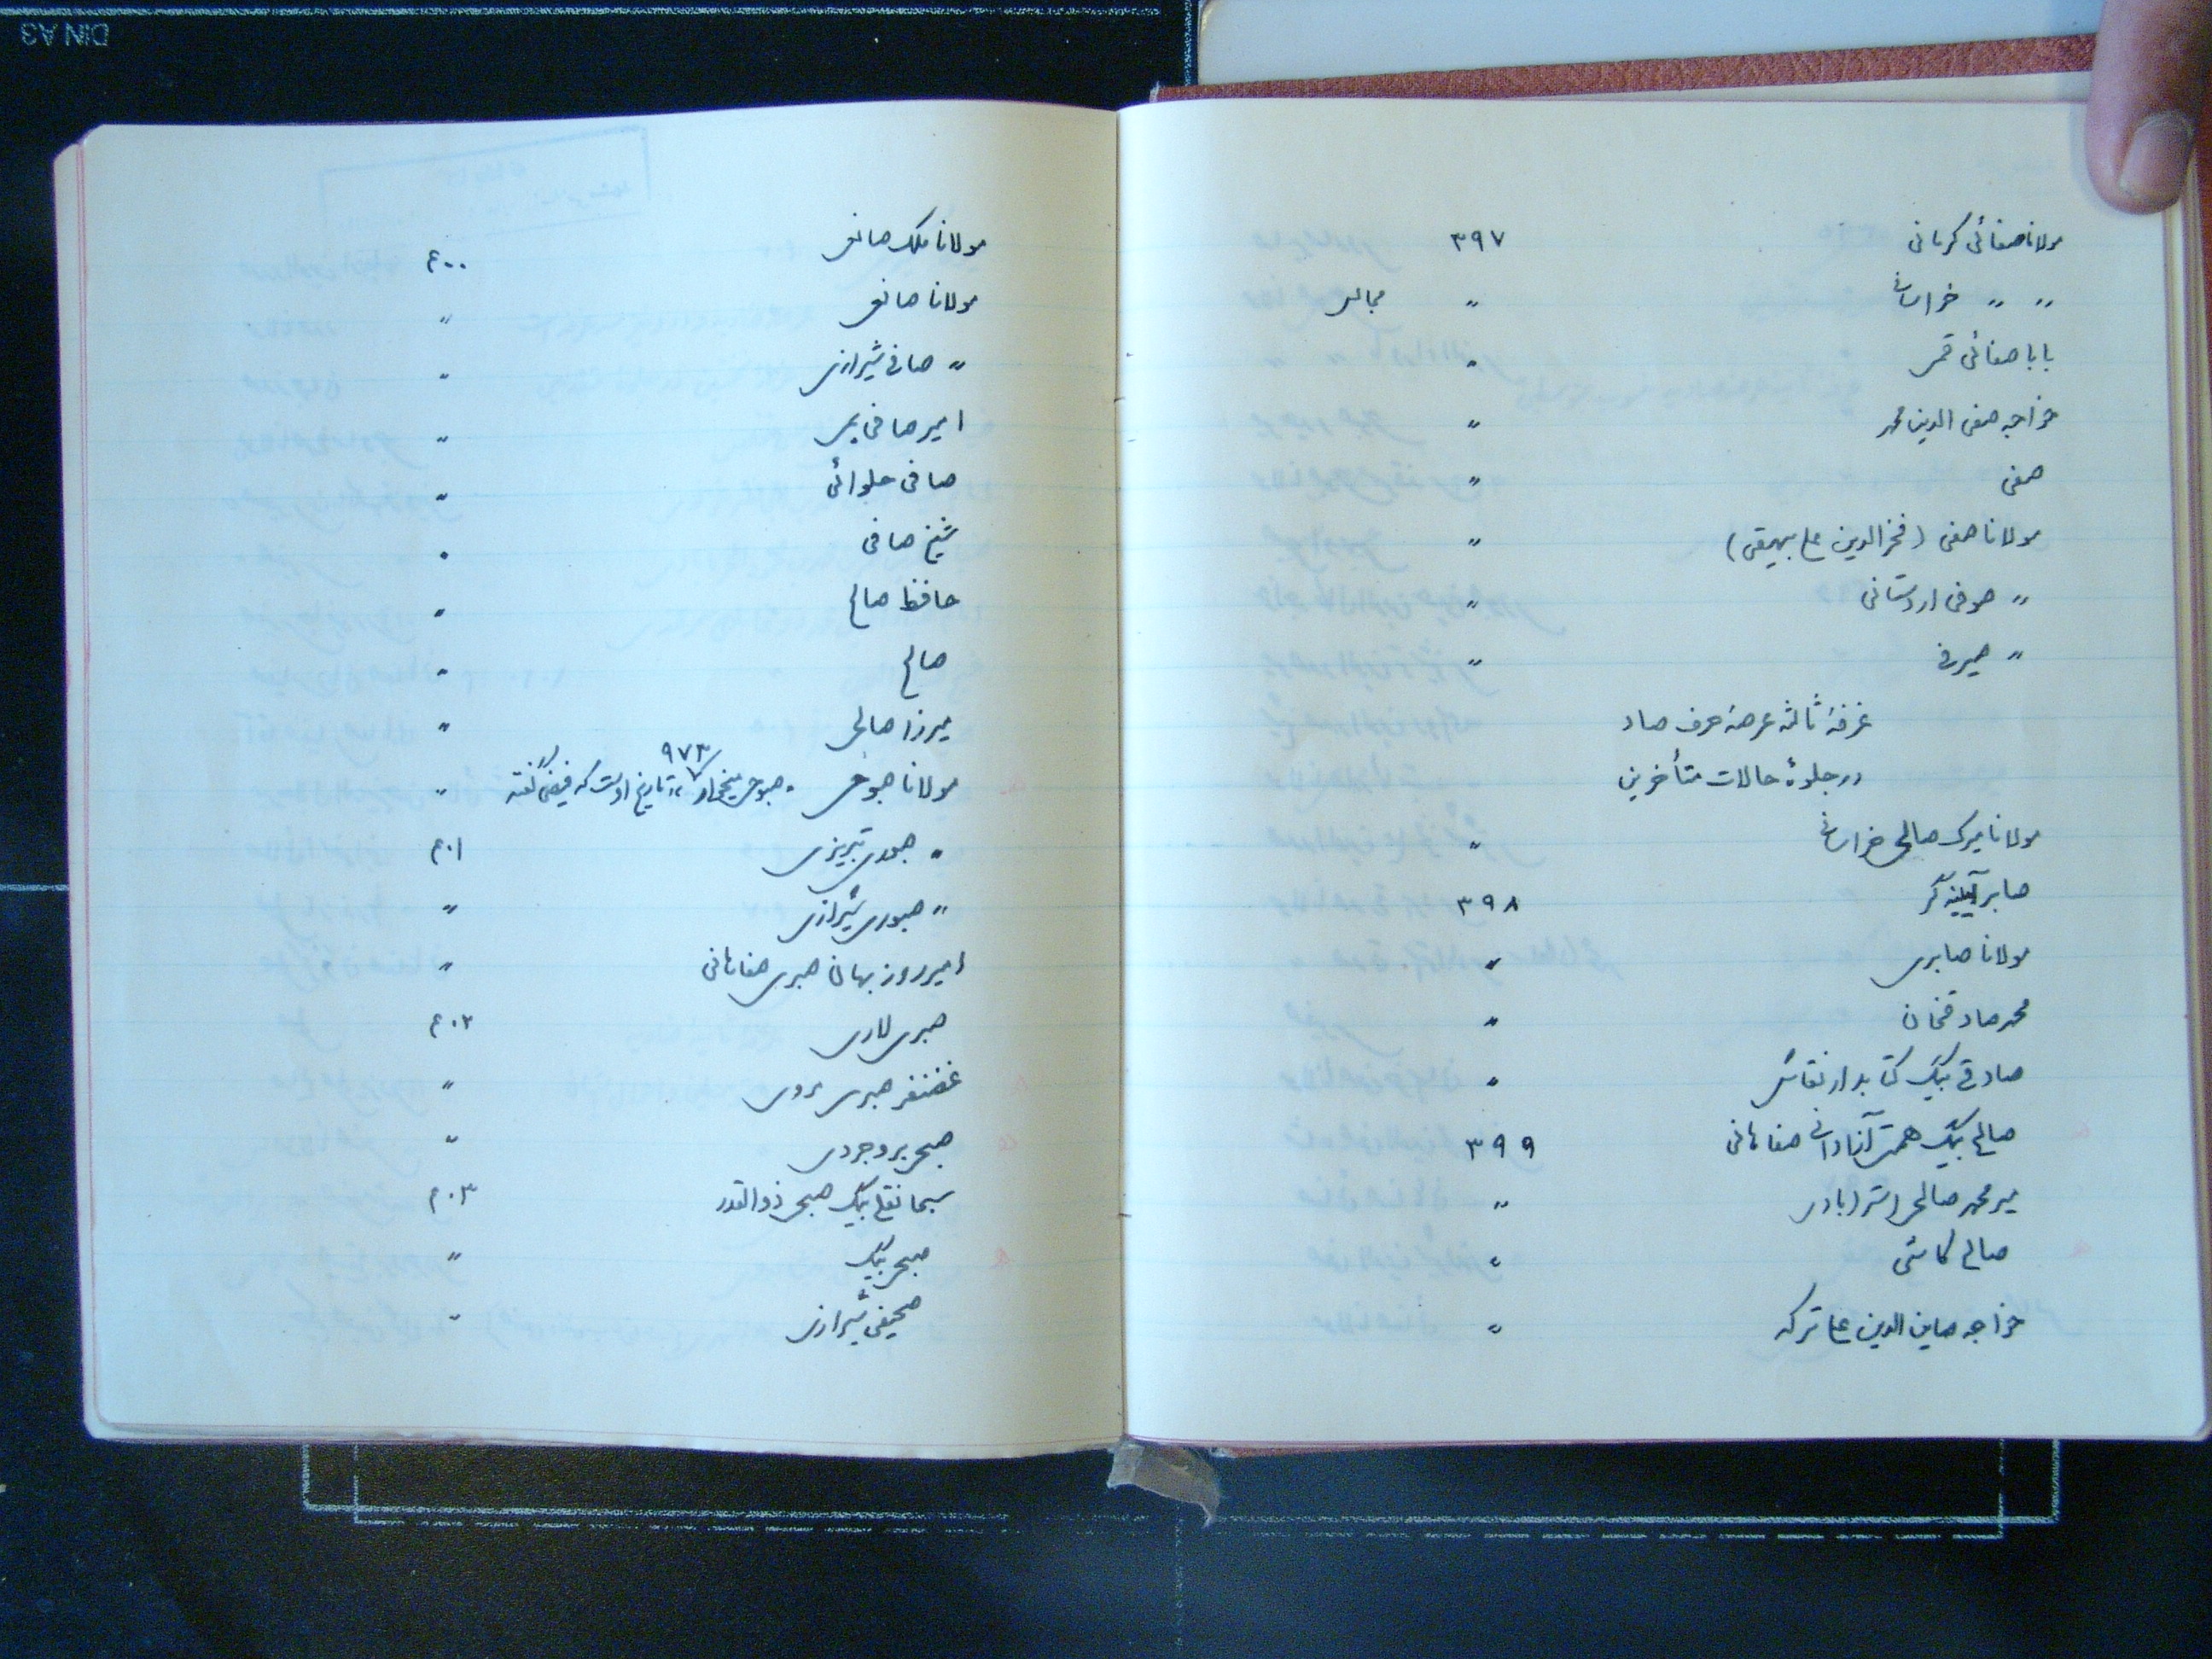 مولانا صفائی کرمانی ۳۹۷
〃 〃 خراسانی 〃 مجالس
بابا صفائی قمی 〃
خواجه صفی الدین محمد 〃
صفی 〃
مولانا صفی (فخرالدین علی بیهقی) 〃
〃 صوفی اردستانی 〃
〃 صیرفی 〃
غرفهٔ ثالثه عرصهٔ حرف صاد
در جلوهٔ حالات متأخرین
مولانا میرک صالحی خراسانی 〃
صابر آیینه گر ۳۹۸
مولانا صابری 〃
محمد صادقخان 〃
صادقی بیک کتابدار نقاش 〃
صالح بیک همت آبادانی صفاهانی ۳۹۹
میر محمد صالحی استرابادی 〃
صالح کاشی 〃
خواجه صاین الدین علی ترکه 〃
مولانا ملک صانعی ۴۰۰
مولانا صانعی 〃
〃 صافی شیرازی 〃
امیر صافی بمی 〃
صافی حلوائی 〃
شیخ صافی 〃
حافظ صالح 〃
صالح 〃
میرزا صالحی 〃
۹۷۳
مولانا صبوحی 〃صبوحی میخوار〃 تاریخ اوست که فیضی گفته 〃
〃 صبوری تبریزی ۴۰۱
〃 صبوری شیرازی 〃
امیر روزبهان صبری صفاهانی 〃
صبری لاری ۴۰۲
غضنفر صبری هروی 〃
صبحی بروجردی 〃
سبحانقلی بیک صبحی ذوالقدر ۴۰۳
صبحی بیک 〃
صحیفی شیرازی 〃
DIN A3